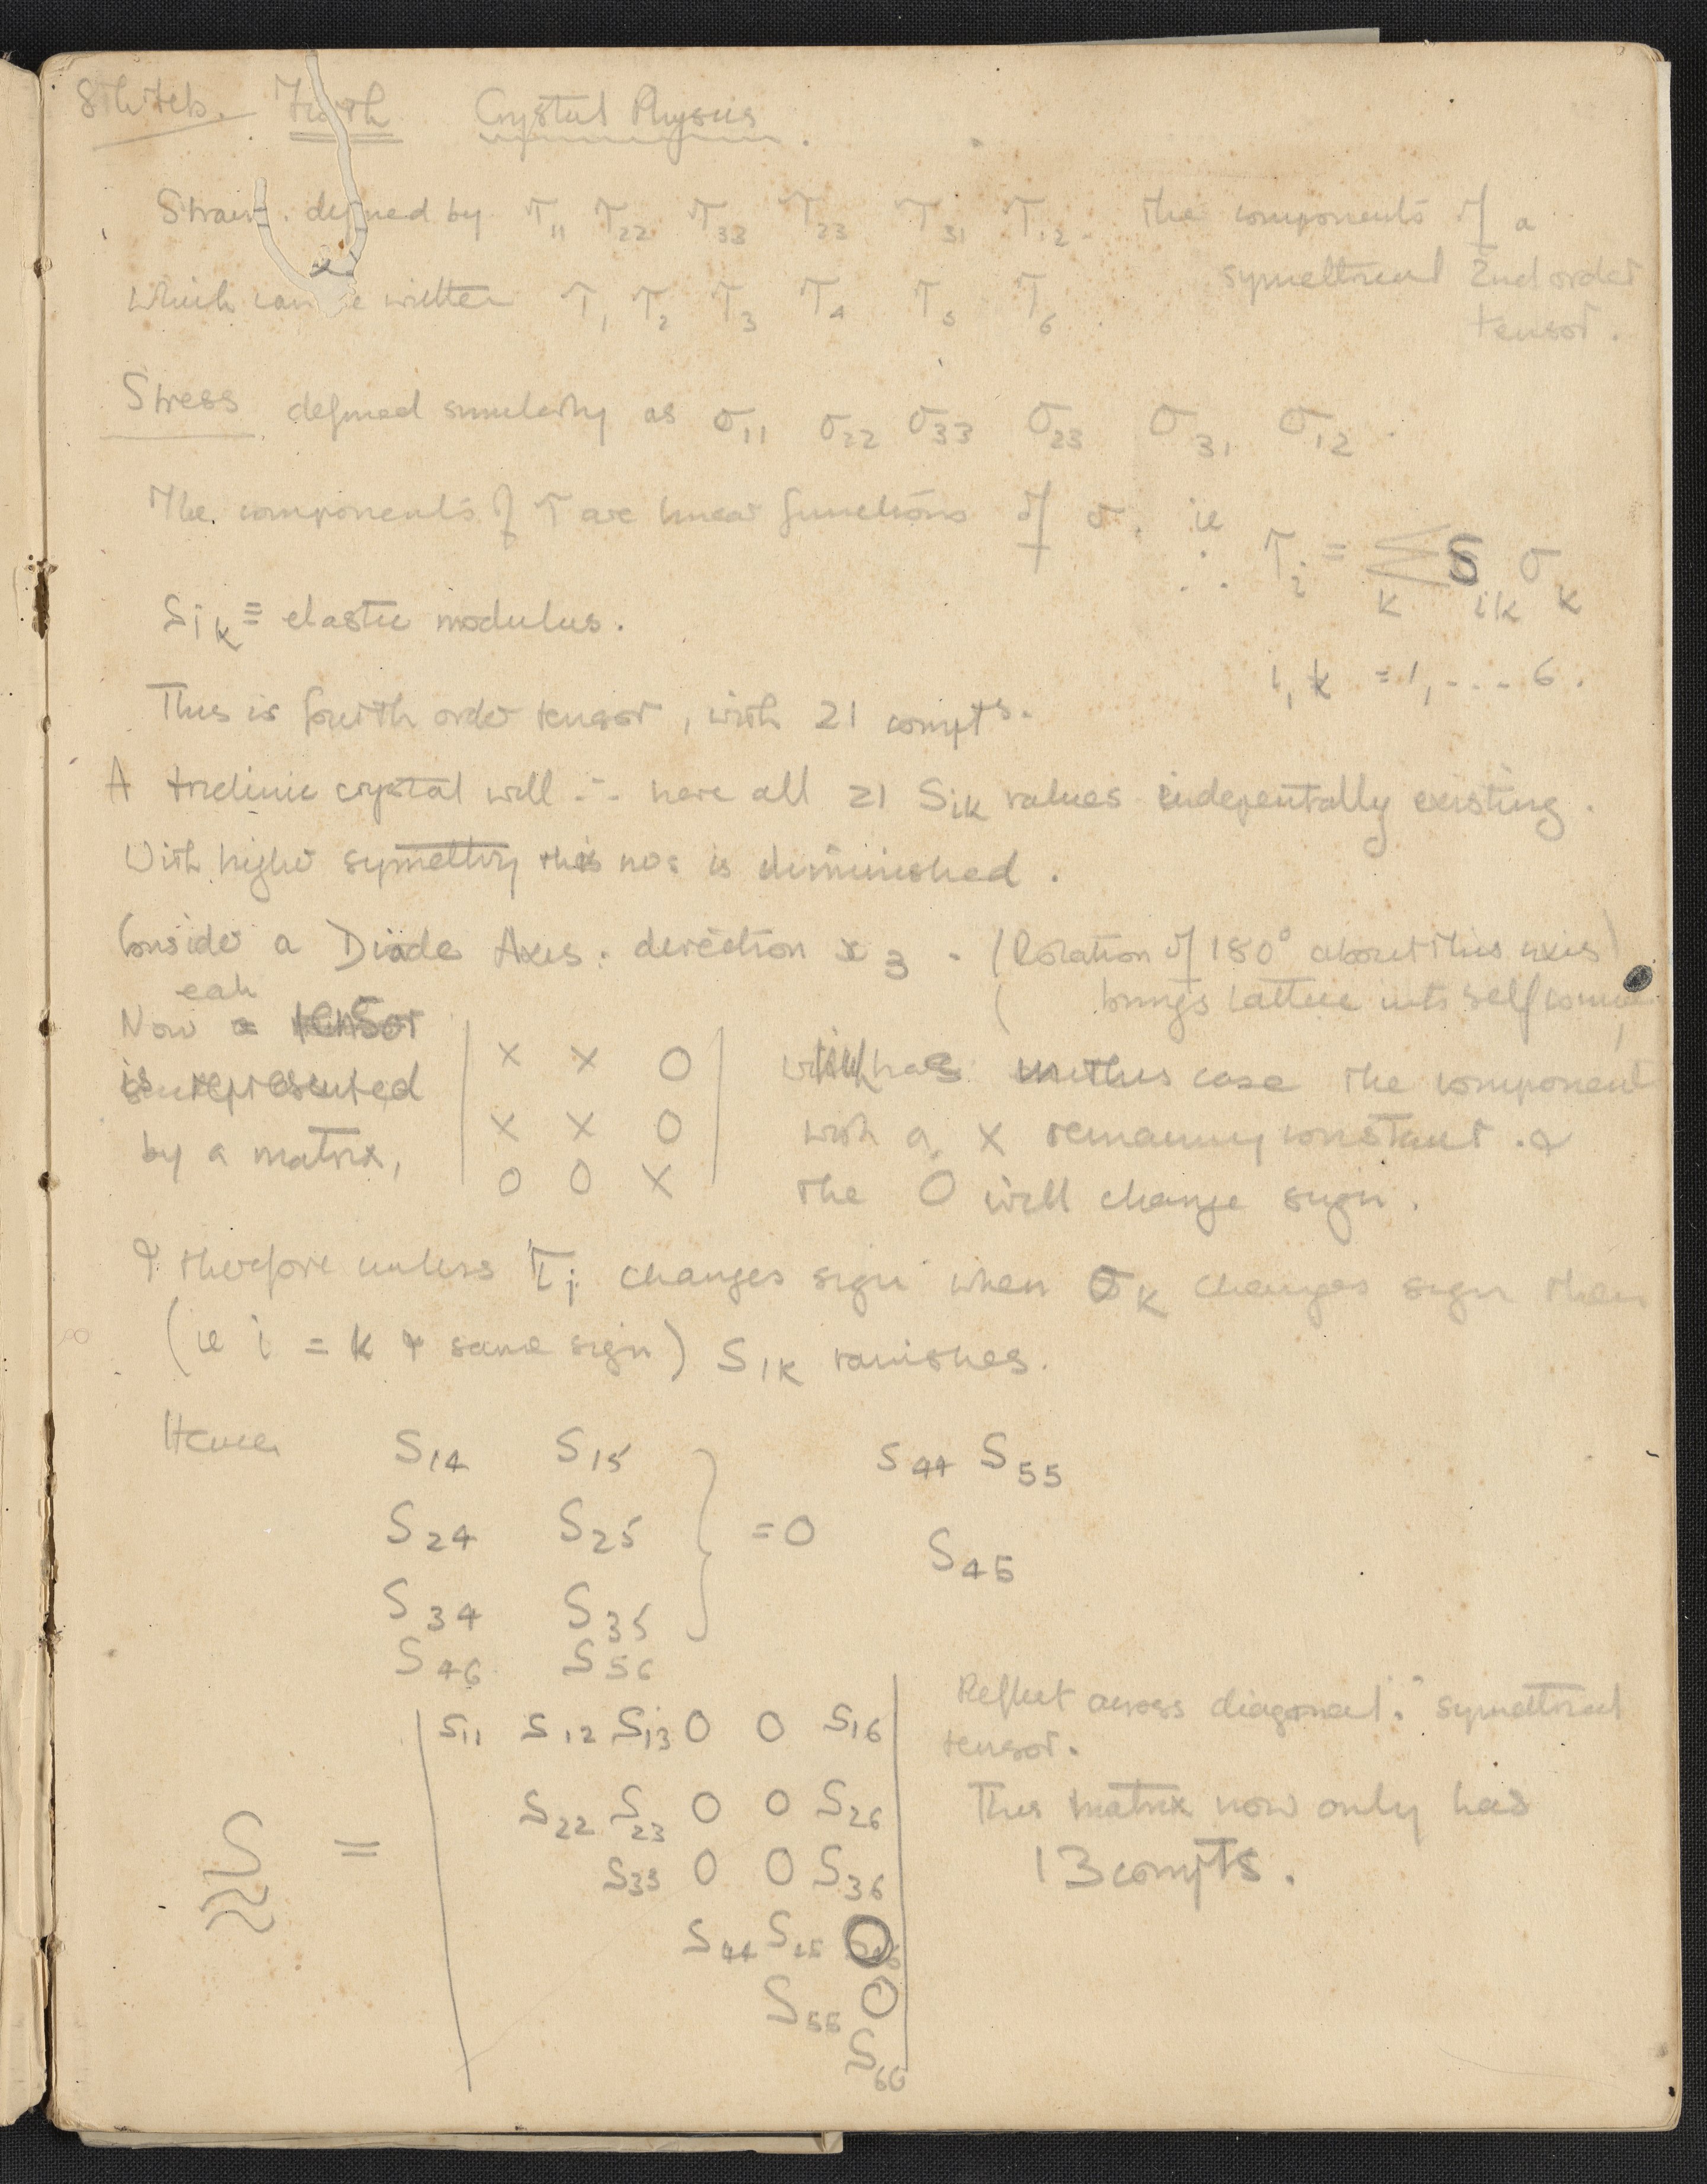 8th Feb. Furth Crystal Physics.
Strain. defined by T₁₁ T₂₂ T₃₃ T₂₃ T₃₁ T₁₂. the components of a
symettrical 2nd order
tensor.
which can be written T₁ T₂ T₃ T₄ T₅ T₆
Stress defined similarly as σ₁₁ σ₂₂ σ₃₃ σ₂₃ σ₃₁ σ₁₂.
The components of T are linear functions of σ. ie
∴ Tᵢ = Σₖ Sᵢₖ σₖ
Sᵢₖ ≡ elastic modulus.
i, k = 1, - - - 6.
This is fourth order tensor, with 21 compts.
A triclinic crystal will ∴ have all 21 Sᵢₖ values indepentally existing.
With higher symettry this no: is diminished.
Consider a Diade Axes. direction x₃. (Rotation of 180° about this axis)
( brings lattice into self
each
Now a tensor
is represented
by a matrix,
| x x 0 |
| x x 0 |
| 0 0 x |
has in this case the component
with a x remaining constant. &
the 0 will change sign.
& therefore unless Tᵢ changes sign when σₖ changes sign then
(ie i = k & same sign) Sᵢₖ vanishes.
Hence S₁₄ S₁₅
S₂₄ S₂₅ } = 0
S₃₄ S₃₅
S₄₆ S₅₆
S₄₄ S₅₅
S₄₅
S =
S₁₁ S₁₂ S₁₃ 0 0 S₁₆
S₂₂ S₂₃ 0 0 S₂₆
S₃₃ 0 0 S₃₆
S₄₄ S₄₅ 0
S₅₅ 0
S₆₆
Reflect across diagonal ∵ symettrical
tensor.
This matrix now only has
13 compts.